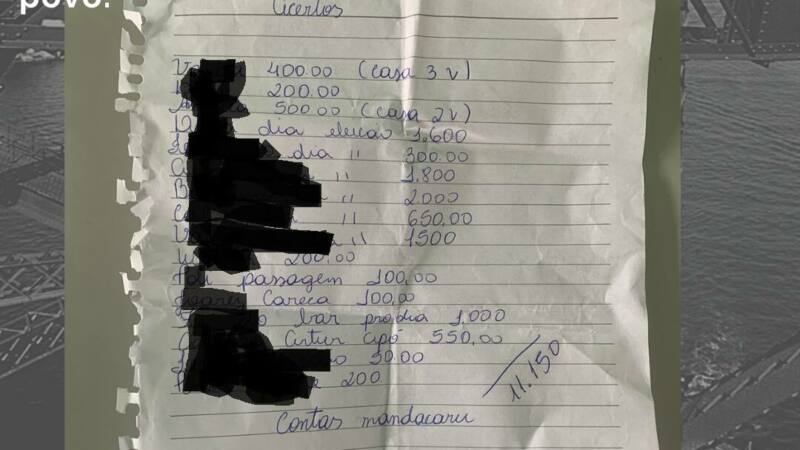 povo.
Acertos
400.00 (casa 3 v)
200.00
500.00 (casa 2 v)
dia eleicao 1.600
dia " 300.00
" 1.800
" 2.000
" 650,00
" 1500
200.00
passagem 100,00
Careca 100,00
bar pro dia 1.000
Artur cipo 550,00
50.00
200
11.150
Contas mandacaru